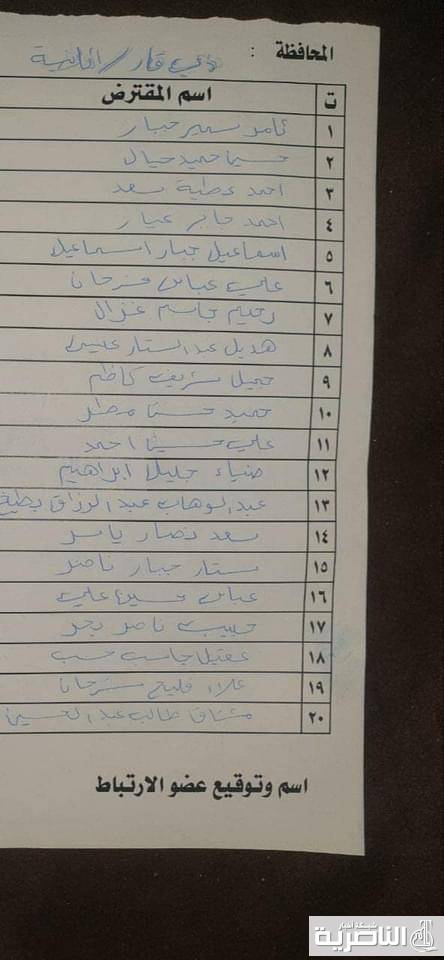 المحافظة : ذي قار / الناصرية
ت اسم المقترض
١ ثامر سمير جبار
٢ حسين حميد حيال
٣ احمد عطية سعد
٤ احمد جابر عيار
٥ اسماعيل جبار اسماعيل
٦ علي عباس فرحان
٧ رحيم جاسم غزال
٨ هديل عبد الستار عيسى
٩ جميل شريف كاظم
١٠ حميد حسن مطر
١١ علي حسين احمد
١٢ ضياء جليل ابراهيم
١٣ عبد الوهاب عبد الرزاق
١٤ سعد نصار ياسر
١٥ ستار جبار ناصر
١٦ عباس حسين علي
١٧ حبيب ناصر
١٨ عقيل جاسب
١٩ علاء فليح فرحان
٢٠ مشتاق طالب عبد الحسين
اسم وتوقيع عضو الارتباط
شبكة اخبار
الناصرية